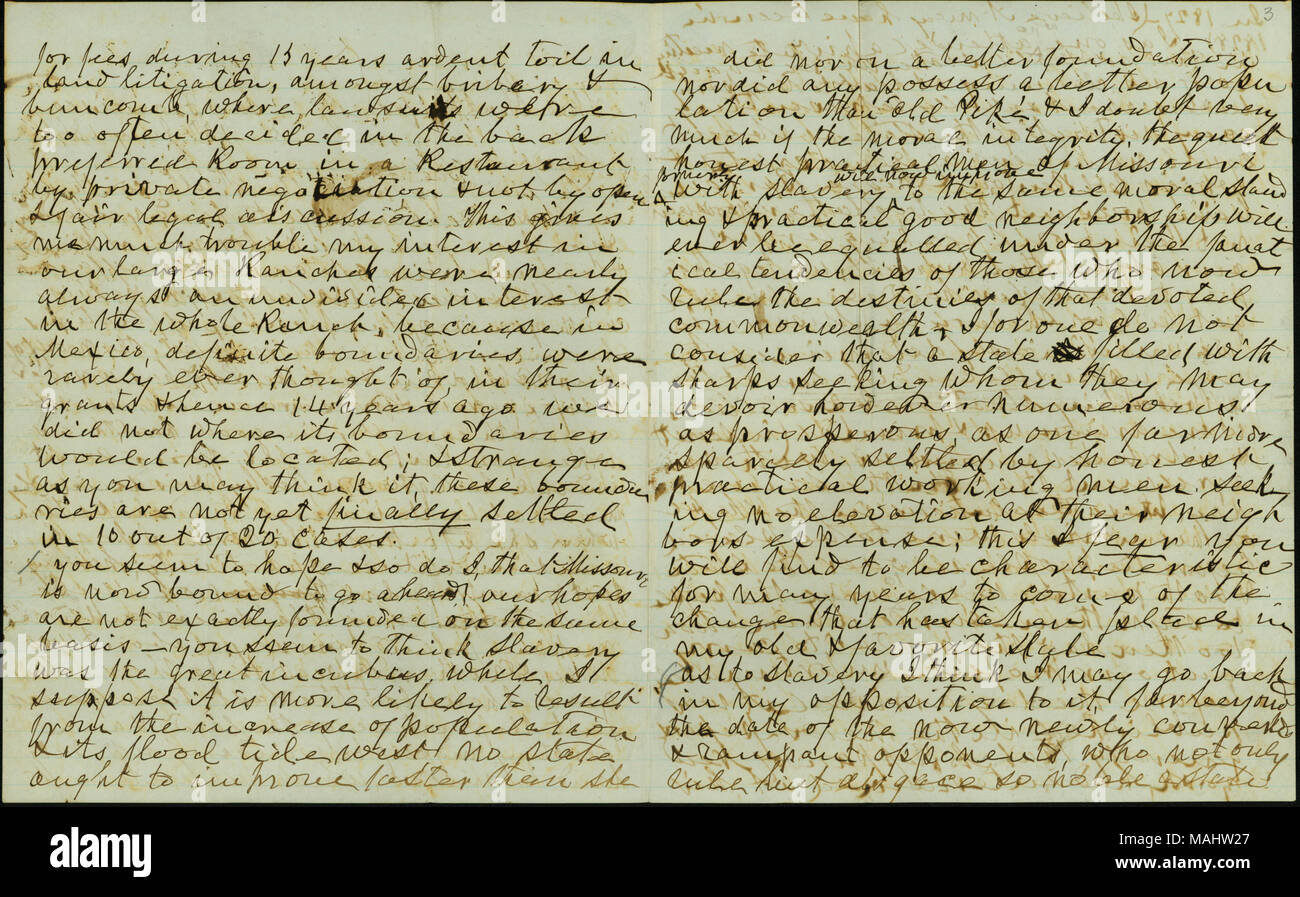 for fees during 13 years ardent toil in
land litigation, amongst bribery &
buncomb, where lawsuits were
too often decided in the back
preferred Room in a Restaurant
by private negotiation & not by open
& fair legal discussion. This gives
me much trouble my interest in
our large Ranches were nearly
always an undivided interest
in the whole Ranch, because in
Mexico, definite boundaries were
rarely ever thought of in their
grants & hence 14 years ago we
did not where its boundaries
would be located; & strange
as you may think it, these bounda
ries are not yet finally settled
in 10 out of 20 cases.
you seem to hope & so do I, that Missouri
is now bound to go ahead, our hopes
are not exactly founded on the same
basis – you seem to think slavery
was the great incubus, while I
suppose it is more likely to result
from the increase of population
& its flood tide west no state
ought to improve faster than she
3
did nor on a better foundation
nor did any possess a better popu
lation than "old Pike", & I doubt very
much if the moral integrity, the quiet
honest practical men of Missouri
with slavery to the same moral stand
ing & practical good neighborship will
ever be equalled under the fanat
ical tendencies of those who now
rule the destinies of that devoted
commonwealth, I for one do not
consider that a state filled with
sharps seeking whom they may
devoir however numerous
as prosperous, as one far more
sparcely settled by honest
practical working men seek
ing no elevation at their neigh
bors expense; this I fear you
will find to be characteristic
for many years to come of the
change that has taken place in
my old & favorite state
as to slavery I think I may go back
in my opposition to it, far beyond
the date of the now newly converted
& rampant opponents, who not only
rule but disgrace so noble a state
alamy
Image ID: MAHW27
www.alamy.com